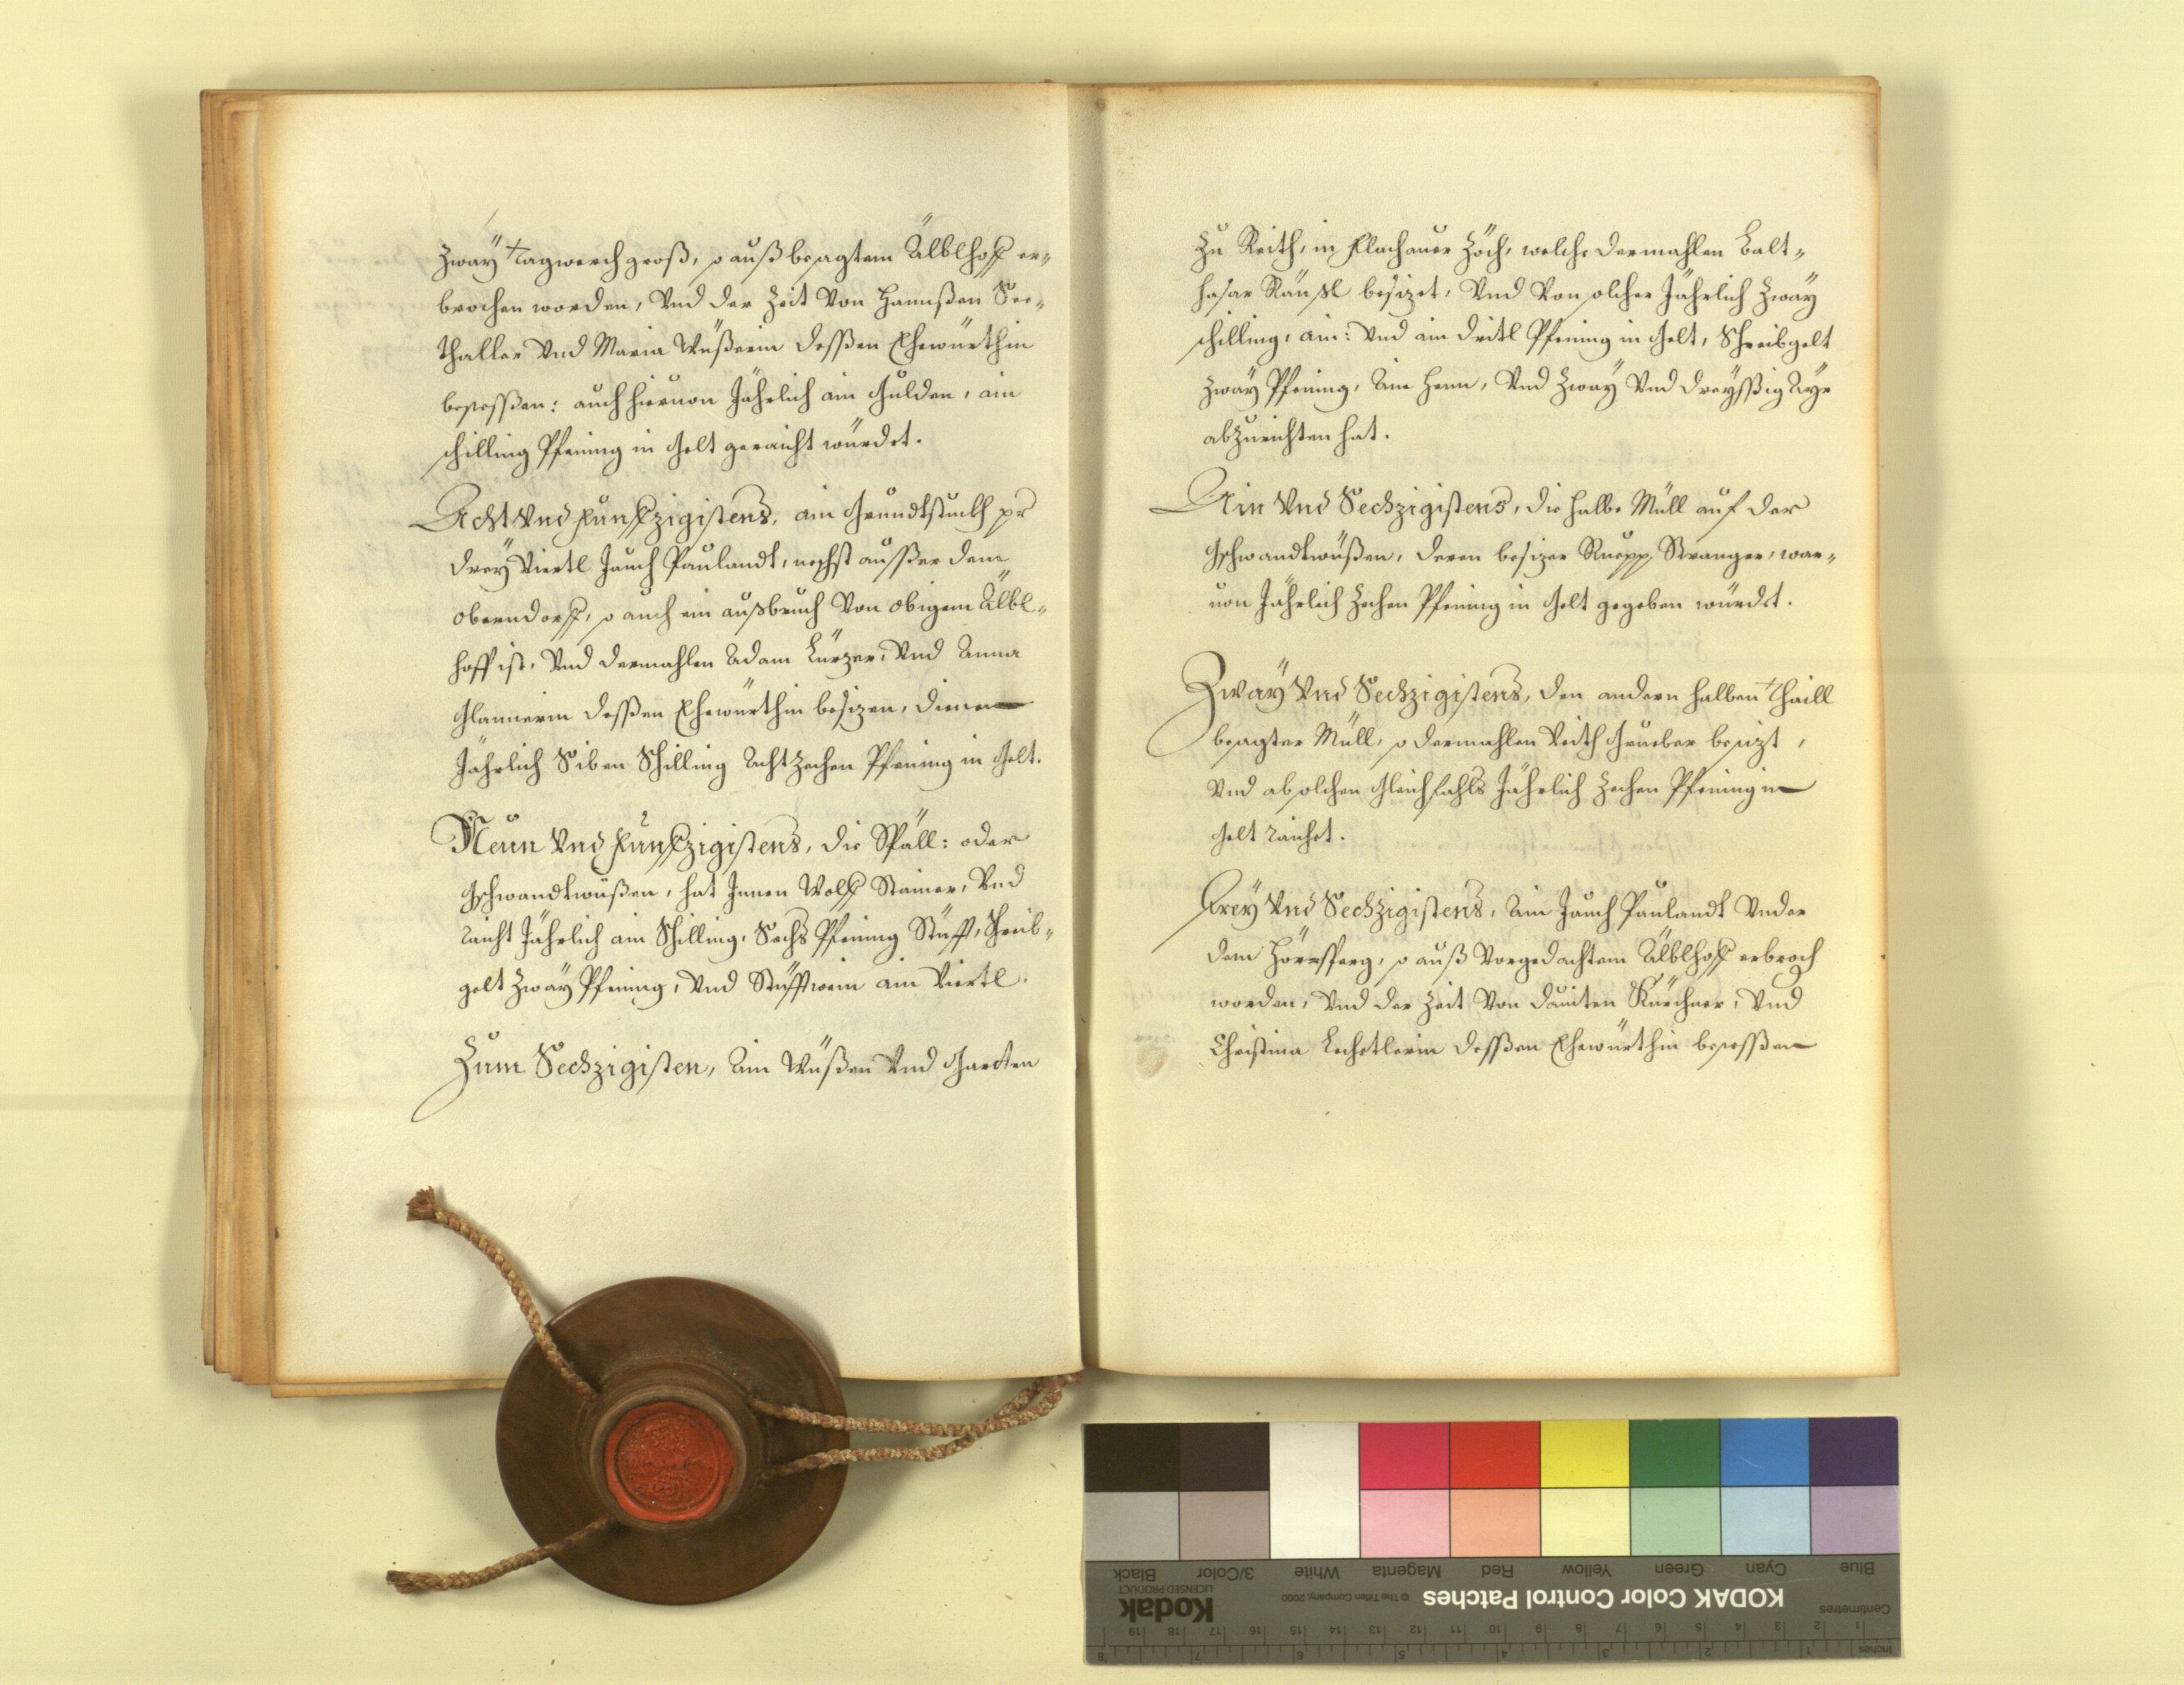 zway Tagwerch groß, so auß besagtem Älblhoff er-
brochen worden, Vnd der Zeit Von Hannßen See-
thaller Vnd Maria Wüßerin dessßen Ehewürthin
besessßen: auch hieruon Jährlich ain Gulden, ain
schilling Pfening in Gelt geraicht würdet.
Acht Vnd Funffzigistens, ain Grundtstuckh pr
drey Viertl Jauch Paulandt, nechst ausßer dem
oberndorff, so auch ein außbruch Von obigem Älbl-
hoff ist, Vnd dermahlen Adam Kürzer, Vnd Anna
Glannerin dessßen Ehewürthin besizen, dienen
Jährlich Siben Schilling Achtzechen Pfening in Gelt.
Neun Vnd Funffzigistens, die Späll: oder
Gschwandtwüßen, hat Innen Wolff Stainer, Vnd
raicht Jährlich ain Schilling, Sechs Pfening Stüfft, Schreib-
gelt zway Pfening, Vnd Stüfftwein ain Viertl.
Zum Sechzigisten, Ain Wüßen Vnd Gartten
zu Reith, in Flachauer Zöch, welche dermahlen Balt-
hasar Räußl besizet, Vnd Von solcher Jährlich zway
schilling, ain: Vnd ain dritl Pfening in Gelt, Schreibgelt
zway Pfening, Ain Henn, Vnd zway Vnd dreysßig Ayr
abzurichten hat.
Ain Vnd Sechzigistens, die halbe Müll auf der
Gschwandtwüßen, deren besizer Ruepp Stranger, war-
uon Jährlich zechen Pfening in Gelt gegeben würdet.
Zway Vnd Sechzigistens, den andern halben Thaill
besagter Müll, so dermahlen Veith Grueber besizt,
Vnd ab solchen Gleichfahls Jährlich zechen Pfening in
Gelt raichet.
Drey Vnd Sechzigistens, Ain Jauch Paulandt Vnder
dem Hörrsperg, so auß Vorgedachtem Älblhoff erbroch
worden, Vnd der Zeit Von Dauiten Kürchner, Vnd
Christina Lechetlerin dessßen Ehewürthin besessßen
Blue
Cyan
Green
Yellow
Red
Magenta
White
3/Color
Black
KODAK Color Control Patches
© The Tiffen Company, 2000
Kodak
LICENSED PRODUCT
Centimetres
1 2 3 4 5 6 7 8 9 10 11 12 13 14 15 16 17 18 19
Inches
1 2 3 4 5 6 7 8